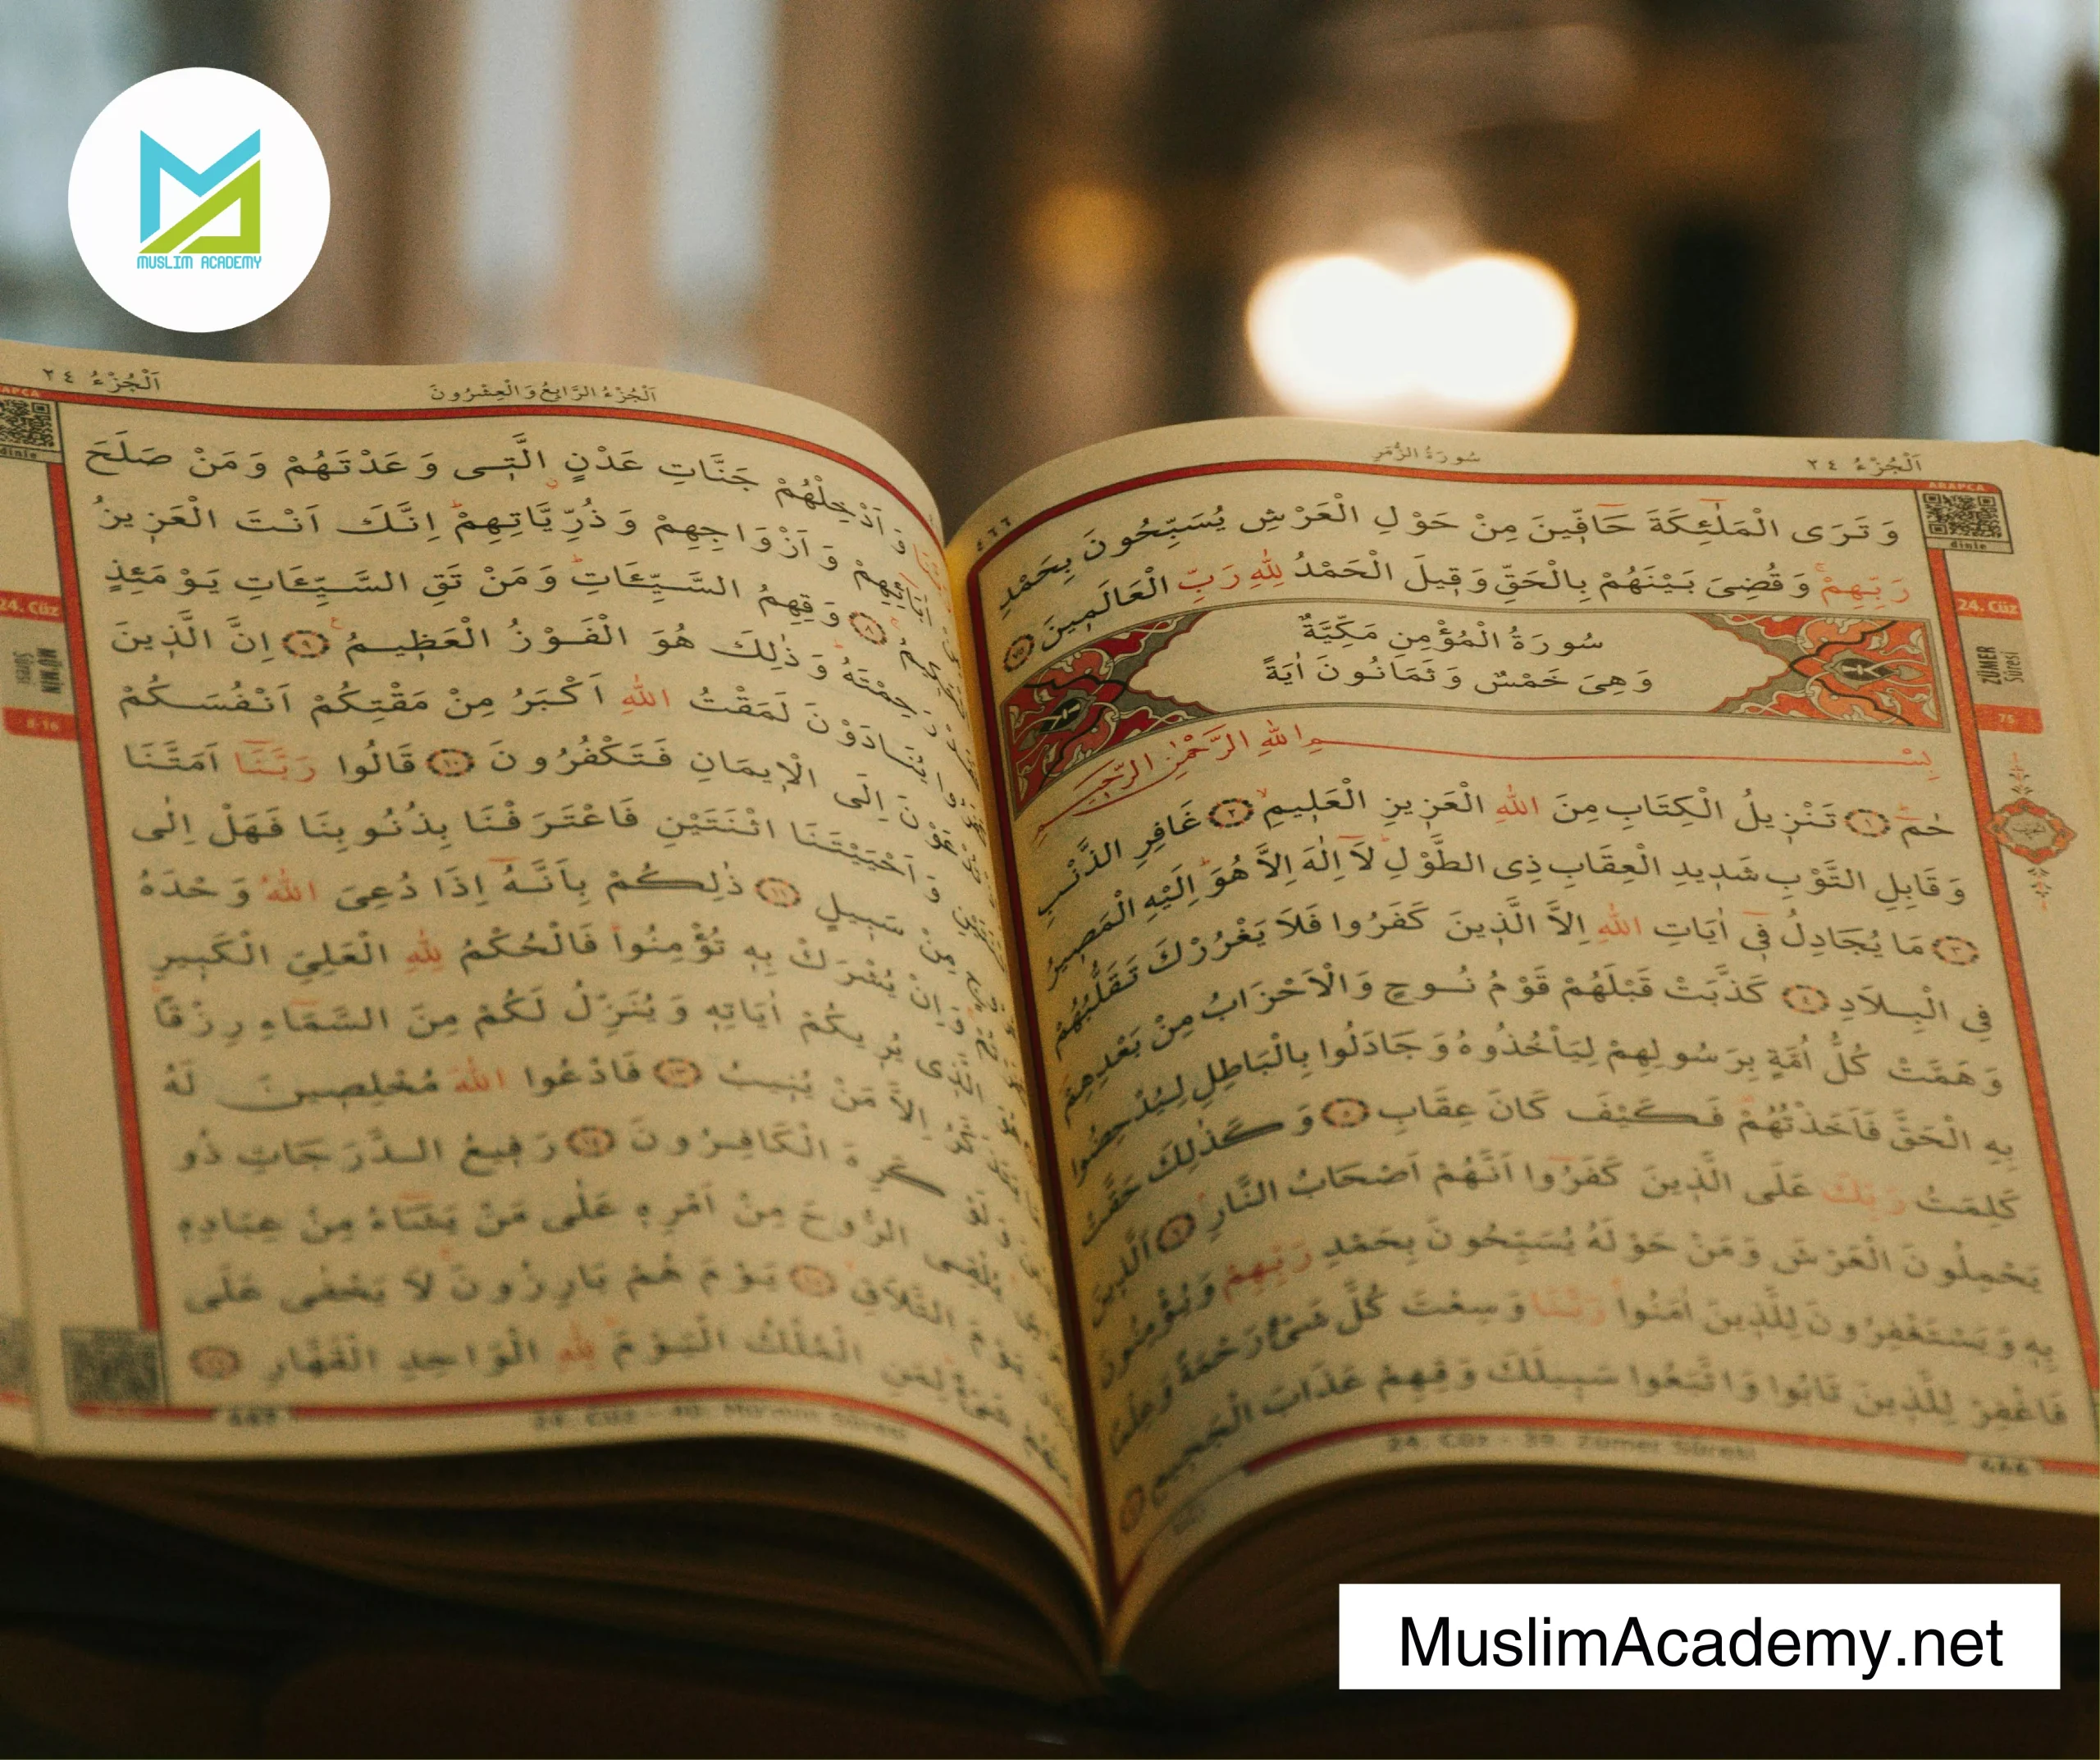 MUSLIM ACADEMY
سُورَةُ الزُّمَرِ
اَلْجُزْءُ ٢٤
ARAPÇA
dinle
٤٦٦
وَتَرَى الْمَلٰٓئِكَةَ حَٓافّ۪ينَ مِنْ حَوْلِ الْعَرْشِ يُسَبِّحُونَ بِحَمْدِ
رَبِّهِمْۚ وَقُضِىَ بَيْنَهُمْ بِالْحَقِّ وَق۪يلَ الْحَمْدُ لِلّٰهِ رَبِّ الْعَالَم۪ينَ ﴿٧٥﴾
24. Cüz
ZÜMER
Sûresi
75
سُورَةُ الْمُؤْمِنِ مَكِّيَّةٌ
وَهِىَ خَمْسٌ وَثَمَانُونَ اٰيَةً
بِسْمِ اللّٰهِ الرَّحْمٰنِ الرَّح۪يمِ
حٰمٓۜ ﴿١﴾ تَنْز۪يلُ الْكِتَابِ مِنَ اللّٰهِ الْعَز۪يزِ الْعَل۪يمِۙ ﴿٢﴾ غَافِرِ الذَّنْبِ
وَقَابِلِ التَّوْبِ شَد۪يدِ الْعِقَابِ ذِى الطَّوْلِۜ لَٓا اِلٰهَ اِلَّا هُوَۜ اِلَيْهِ الْمَص۪يرُ
﴿٣﴾ مَا يُجَادِلُ ف۪ٓى اٰيَاتِ اللّٰهِ اِلَّا الَّذ۪ينَ كَفَرُوا فَلَا يَغْرُرْكَ تَقَلُّبُهُمْ
فِى الْبِلَادِ ﴿٤﴾ كَذَّبَتْ قَبْلَهُمْ قَوْمُ نُوحٍ وَالْاَحْزَابُ مِنْ بَعْدِهِمْ
وَهَمَّتْ كُلُّ اُمَّةٍ بِرَسُولِهِمْ لِيَأْخُذُوهُ وَجَادَلُوا بِالْبَاطِلِ لِيُدْحِضُوا
بِهِ الْحَقَّ فَاَخَذْتُهُمْ فَكَيْفَ كَانَ عِقَابِ ﴿٥﴾ وَكَذٰلِكَ حَقَّتْ
كَلِمَتُ رَبِّكَ عَلَى الَّذ۪ينَ كَفَرُٓوا اَنَّهُمْ اَصْحَابُ النَّارِۢ ﴿٦﴾ اَلَّذ۪ينَ
يَحْمِلُونَ الْعَرْشَ وَمَنْ حَوْلَهُ يُسَبِّحُونَ بِحَمْدِ رَبِّهِمْ وَيُؤْمِنُونَ
بِه۪ وَيَسْتَغْفِرُونَ لِلَّذ۪ينَ اٰمَنُواۚ رَبَّنَا وَسِعْتَ كُلَّ شَىْءٍ رَحْمَةً وَعِلْمًا
فَاغْفِرْ لِلَّذ۪ينَ تَابُوا وَاتَّبَعُوا سَب۪يلَكَ وَقِهِمْ عَذَابَ الْجَح۪يمِ
24. Cüz - 39. Zümer Sûresi
اَلْجُزْءُ الرَّابِعُ وَالْعِشْرُونَ
اَلْجُزْءُ ٢٤
dinle
24. Cüz
MÜ'MİN
Sûresi
8-16
وَاَدْخِلْهُمْ جَنَّاتِ عَدْنٍ الَّت۪ى وَعَدْتَهُمْ وَمَنْ صَلَحَ
وَاَزْوَاجِهِمْ وَذُرِّيَّاتِهِمْۜ اِنَّكَ اَنْتَ الْعَز۪يزُ
﴿٨﴾ وَقِهِمُ السَّيِّـَٔاتِۜ وَمَنْ تَقِ السَّيِّـَٔاتِ يَوْمَئِذٍ
وَذٰلِكَ هُوَ الْفَوْزُ الْعَظ۪يمُ۟ ﴿٩﴾ اِنَّ الَّذ۪ينَ
يُنَادَوْنَ لَمَقْتُ اللّٰهِ اَكْبَرُ مِنْ مَقْتِكُمْ اَنْفُسَكُمْ
اِلَى الْا۪يمَانِ فَتَكْفُرُونَ ﴿١٠﴾ قَالُوا رَبَّنَٓا اَمَتَّنَا
وَاَحْيَيْتَنَا اثْنَتَيْنِ فَاعْتَرَفْنَا بِذُنُوبِنَا فَهَلْ اِلٰى
مِنْ سَب۪يلٍ ﴿١١﴾ ذٰلِكُمْ بِاَنَّهُٓ اِذَا دُعِىَ اللّٰهُ وَحْدَهُ
وَاِنْ يُشْرَكْ بِه۪ تُؤْمِنُواۜ فَالْحُكْمُ لِلّٰهِ الْعَلِىِّ الْكَب۪يرِ
الَّذ۪ى يُر۪يكُمْ اٰيَاتِه۪ وَيُنَزِّلُ لَكُمْ مِنَ السَّمَٓاءِ رِزْقًاۜ
اِلَّا مَنْ يُن۪يبُ ﴿١٣﴾ فَادْعُوا اللّٰهَ مُخْلِص۪ينَ لَهُ
كَرِهَ الْكَافِرُونَ ﴿١٤﴾ رَف۪يعُ الدَّرَجَاتِ ذُو
يُلْقِى الرُّوحَ مِنْ اَمْرِه۪ عَلٰى مَنْ يَشَٓاءُ مِنْ عِبَادِه۪
يَوْمَ التَّلَاقِۙ ﴿١٥﴾ يَوْمَ هُمْ بَارِزُونَۚ لَا يَخْفٰى عَلَى
شَىْءٌۜ لِمَنِ الْمُلْكُ الْيَوْمَۜ لِلّٰهِ الْوَاحِدِ الْقَهَّارِ ﴿١٦﴾
24. Cüz - 40. Mü'min Sûresi
MuslimAcademy.net